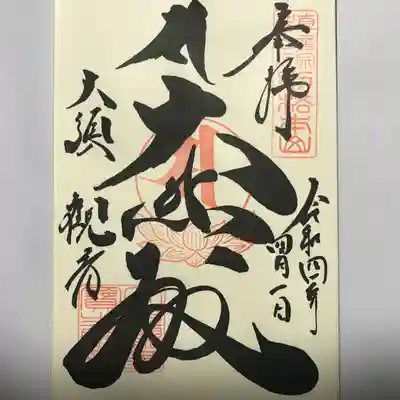 奉拝
令和四年
四月一日
大悲殿
大須
観音